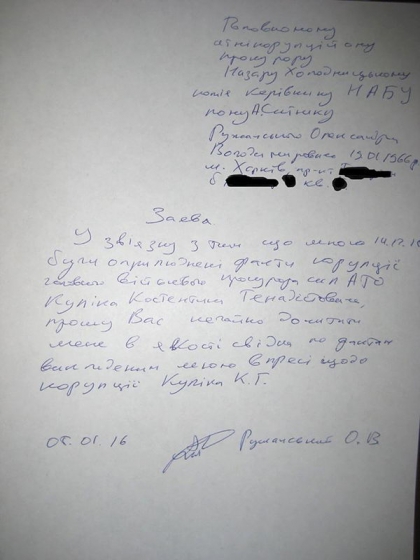 Головному
антикорупційному
прокурору
Назару Холодницькому
копія керівнику НАБУ
пану А. Ситнику
Румянського Олександра
19.01.1966р
м. Харків,
б кв.
Заява
У звіязку з тим що мною
були оприлюднені факти корупції
головного військового прокурора сил АТО
Куліка Костянтина Генадійовича,
прошу Вас негайно допитати
мене в якості свідка по фактам
викладеним мною в пресі щодо
корупції Куліка К.Г.
05.01.16 О.В